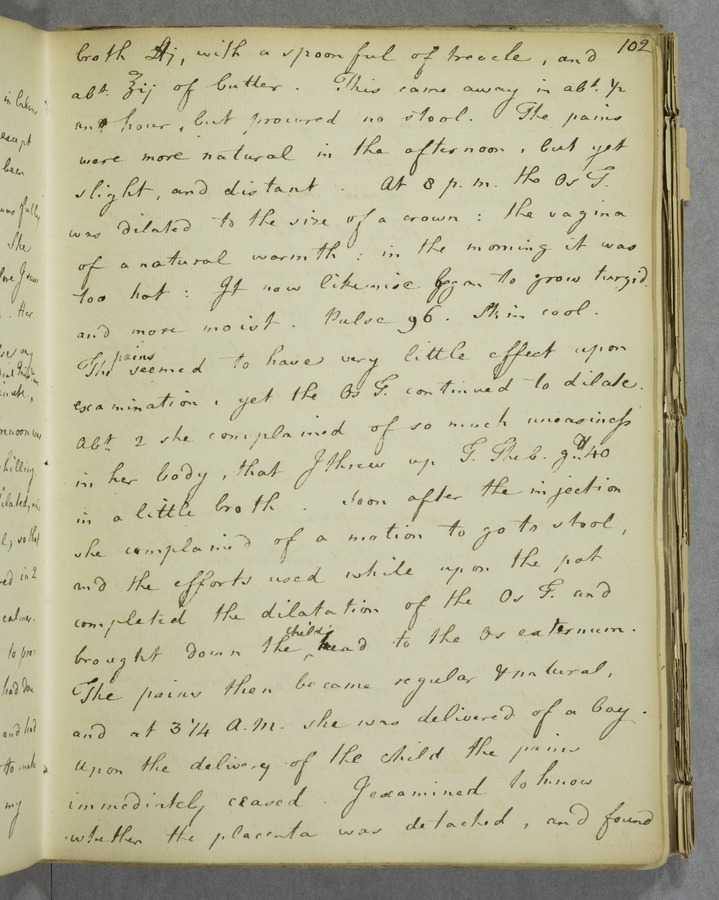 102
broth ℔j, with a spoonful of treacle, and
abt. ℥ij of butter. This came away in abt. ½
an hour, but procured no stool. The pains
were more natural in the afternoon, but yet
slight, and distant. At 8 p.m. the Os T.
was dilated to the size of a crown: the vagina
of a natural warmth: in the morning it was
too hot: It now likewise began to grow turgid.
and more moist. Pulse 96. Skin cool.
The pains seemed to have very little effect upon
examination, yet the Os T. continued to dilate.
Abt. 2 she complained of so much uneasiness
in her body, that I threw up T. Theb. gtt. 40
in a little broth. Soon after the injection
she complain'd of a motion to go to stool,
and the efforts used while upon the pot
completed the dilatation of the Os T. and
brought down the child's head to the os externum.
The pains then became regular & natural,
and at 3 1/4 A.M. she was delivered of a boy.
Upon the delivery of the child the pains
immediately ceased. I examined to know
whether the placenta was detached, and found